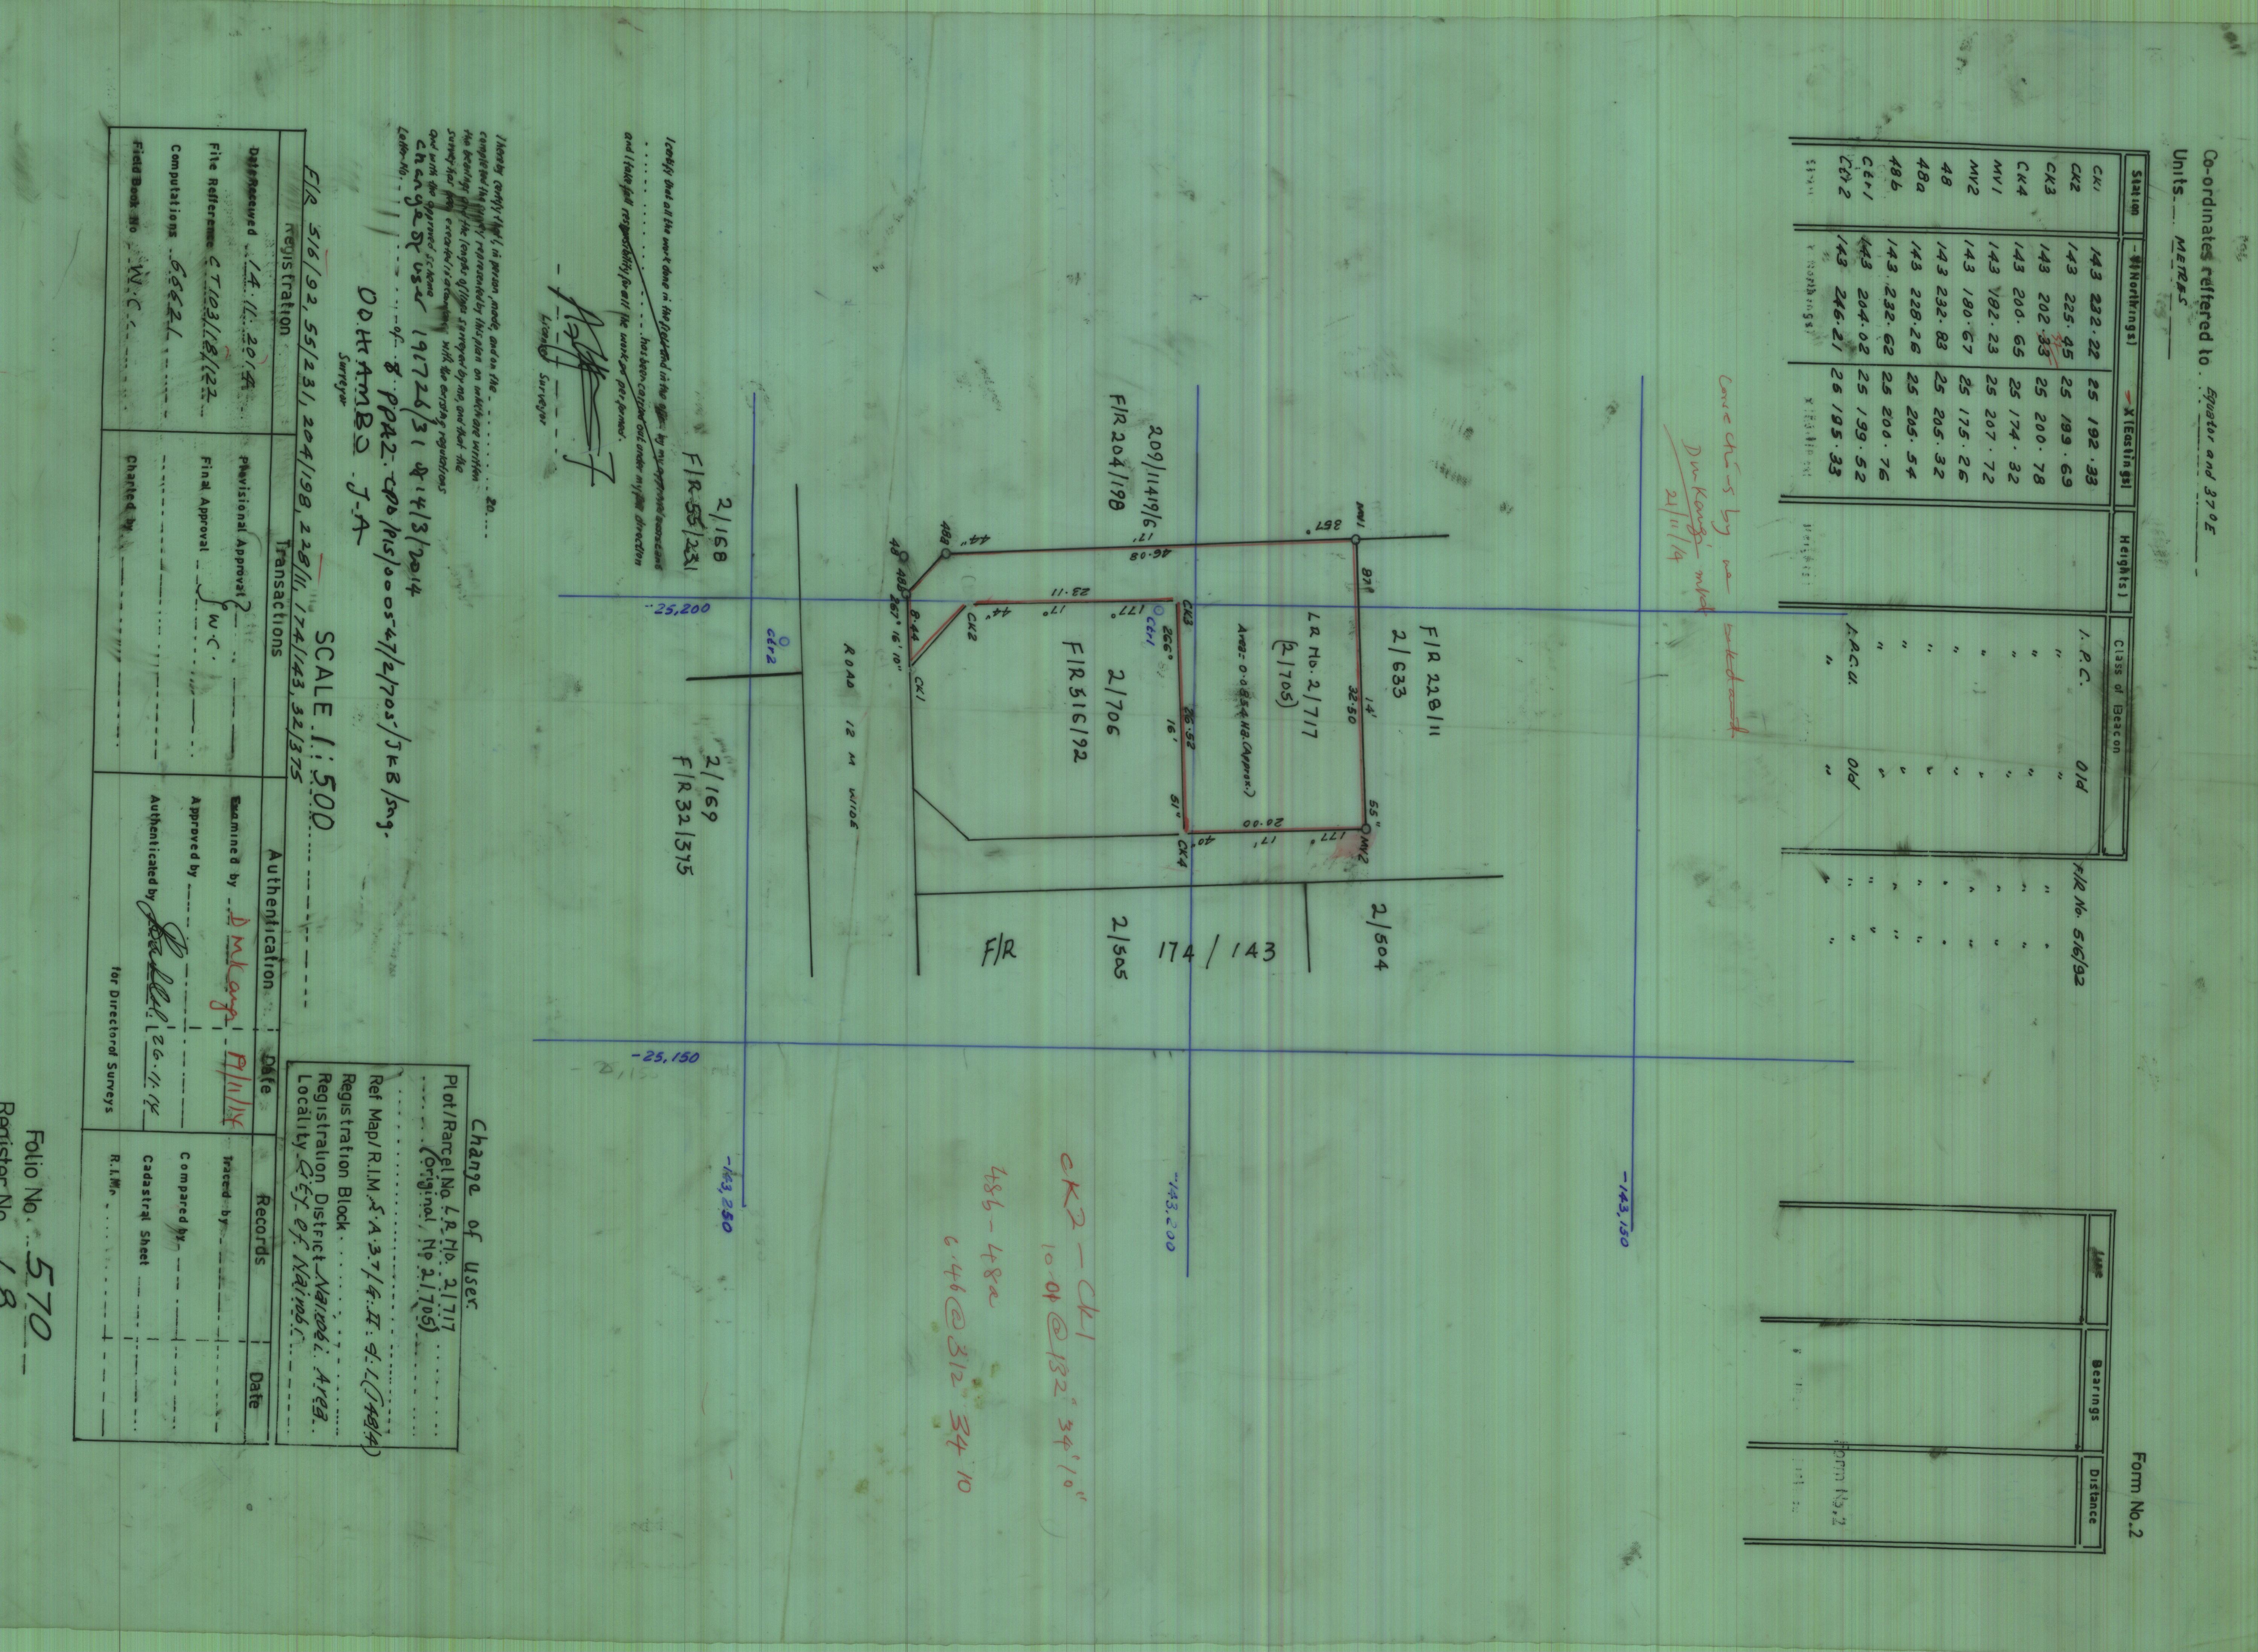 Form No.2
Co-ordinates reffered to. Equator and 37°E
Units METRES
Station -Y(Northings) -X(Eastings) Heights) Class of Beacon
CK1 143 232.22 25 192.33 I.P.C. Old F/R No. 516/92
CK2 143 225.45 25 199.69 " " " "
CK3 143 202.33 25 200.78 " " " "
CK4 143 200.65 25 174.32 " " " "
MV1 143 182.23 25 207.72 " " " "
MV2 143 180.67 25 175.26 " " " "
48 143 232.83 25 205.32 " " " "
48a 143 228.26 25 205.54 " " " "
48b 143.232.62 25 200.76 " " " "
Ctr1 143 204.02 25 199.52 I.P.C.U. Old " "
Ctr2 143 246.21 25 195.33 " " " "
Line Bearings Distance
Form No.2
21/11/14
-143,150
F/R 228/11
2/633
2/504
MV1
87°
14'
32.50
55"
MV2
LR No. 2/717
(2/705)
Area= 0.0854 HA.(Approx.)
357°
17'
46.08
44"
177°
17'
20.00
40"
209/11419/6
F/R 204/198
Ctr1
CK3
266°
26.52
16'
51"
CK4
174/143
-143,200
177°
17°
23.11
44"
2/706
F/R 516/92
2/505
F/R
CK2
CK2 - CK1
10.01@132° 34' 10"
48b - 48a
6.46@312 34 10
48a
48
48b
8.44
267° 16' 10"
CK1
ROAD 12 M WIDE
Ctr2
-143,250
2/168
F/R 55/231
2/169
F/R 32/375
-25,200
-25,150
I certify that all the work done in the field and in the office by my approved assistant
has been carried out under my full direction
and I take full responsibility for all the work so performed.
Licensed Surveyor
I hereby certify that I, in person, made, and on the 20
completed the survey represented by this plan on which are written
the bearings and the lengths of lines surveyed by me, and that the
survey has been executed in accordance with the existing regulations
and with the approved scheme
change of user 191726/31 of 14/3/2014
Letter No. of 8 PPA2.CPD/PIS/00547/2/705/JKB/sng.
ODHIAMBO J.A
Surveyor
SCALE 1:500
F/R 516/92, 55/231, 204/198, 228/11, 174/143, 32/375
Change of User
Plot/Parcel No LR No. 2/717
(Original, No 2/705)
Ref Map/R.I.M. S.A.37/G.II.d.1.(TABIA)
Registration Block
Registration District Nairobi Area
Locality City of Nairobi
Registration Transactions Authentication Date Records Date
Date Received 14.11.2014 Provisional Approval Examined by D MKangi 19/11/14 Traced by
File Reference CT103/18/122 Final Approval W.C. Approved by Compared by
Computations 66621 Authenticated by 26.11.14 Cadastral Sheet
Field Book No W.C. Charted by for Director of Surveys R.I.Mr
Folio No. 570
Register No. 18